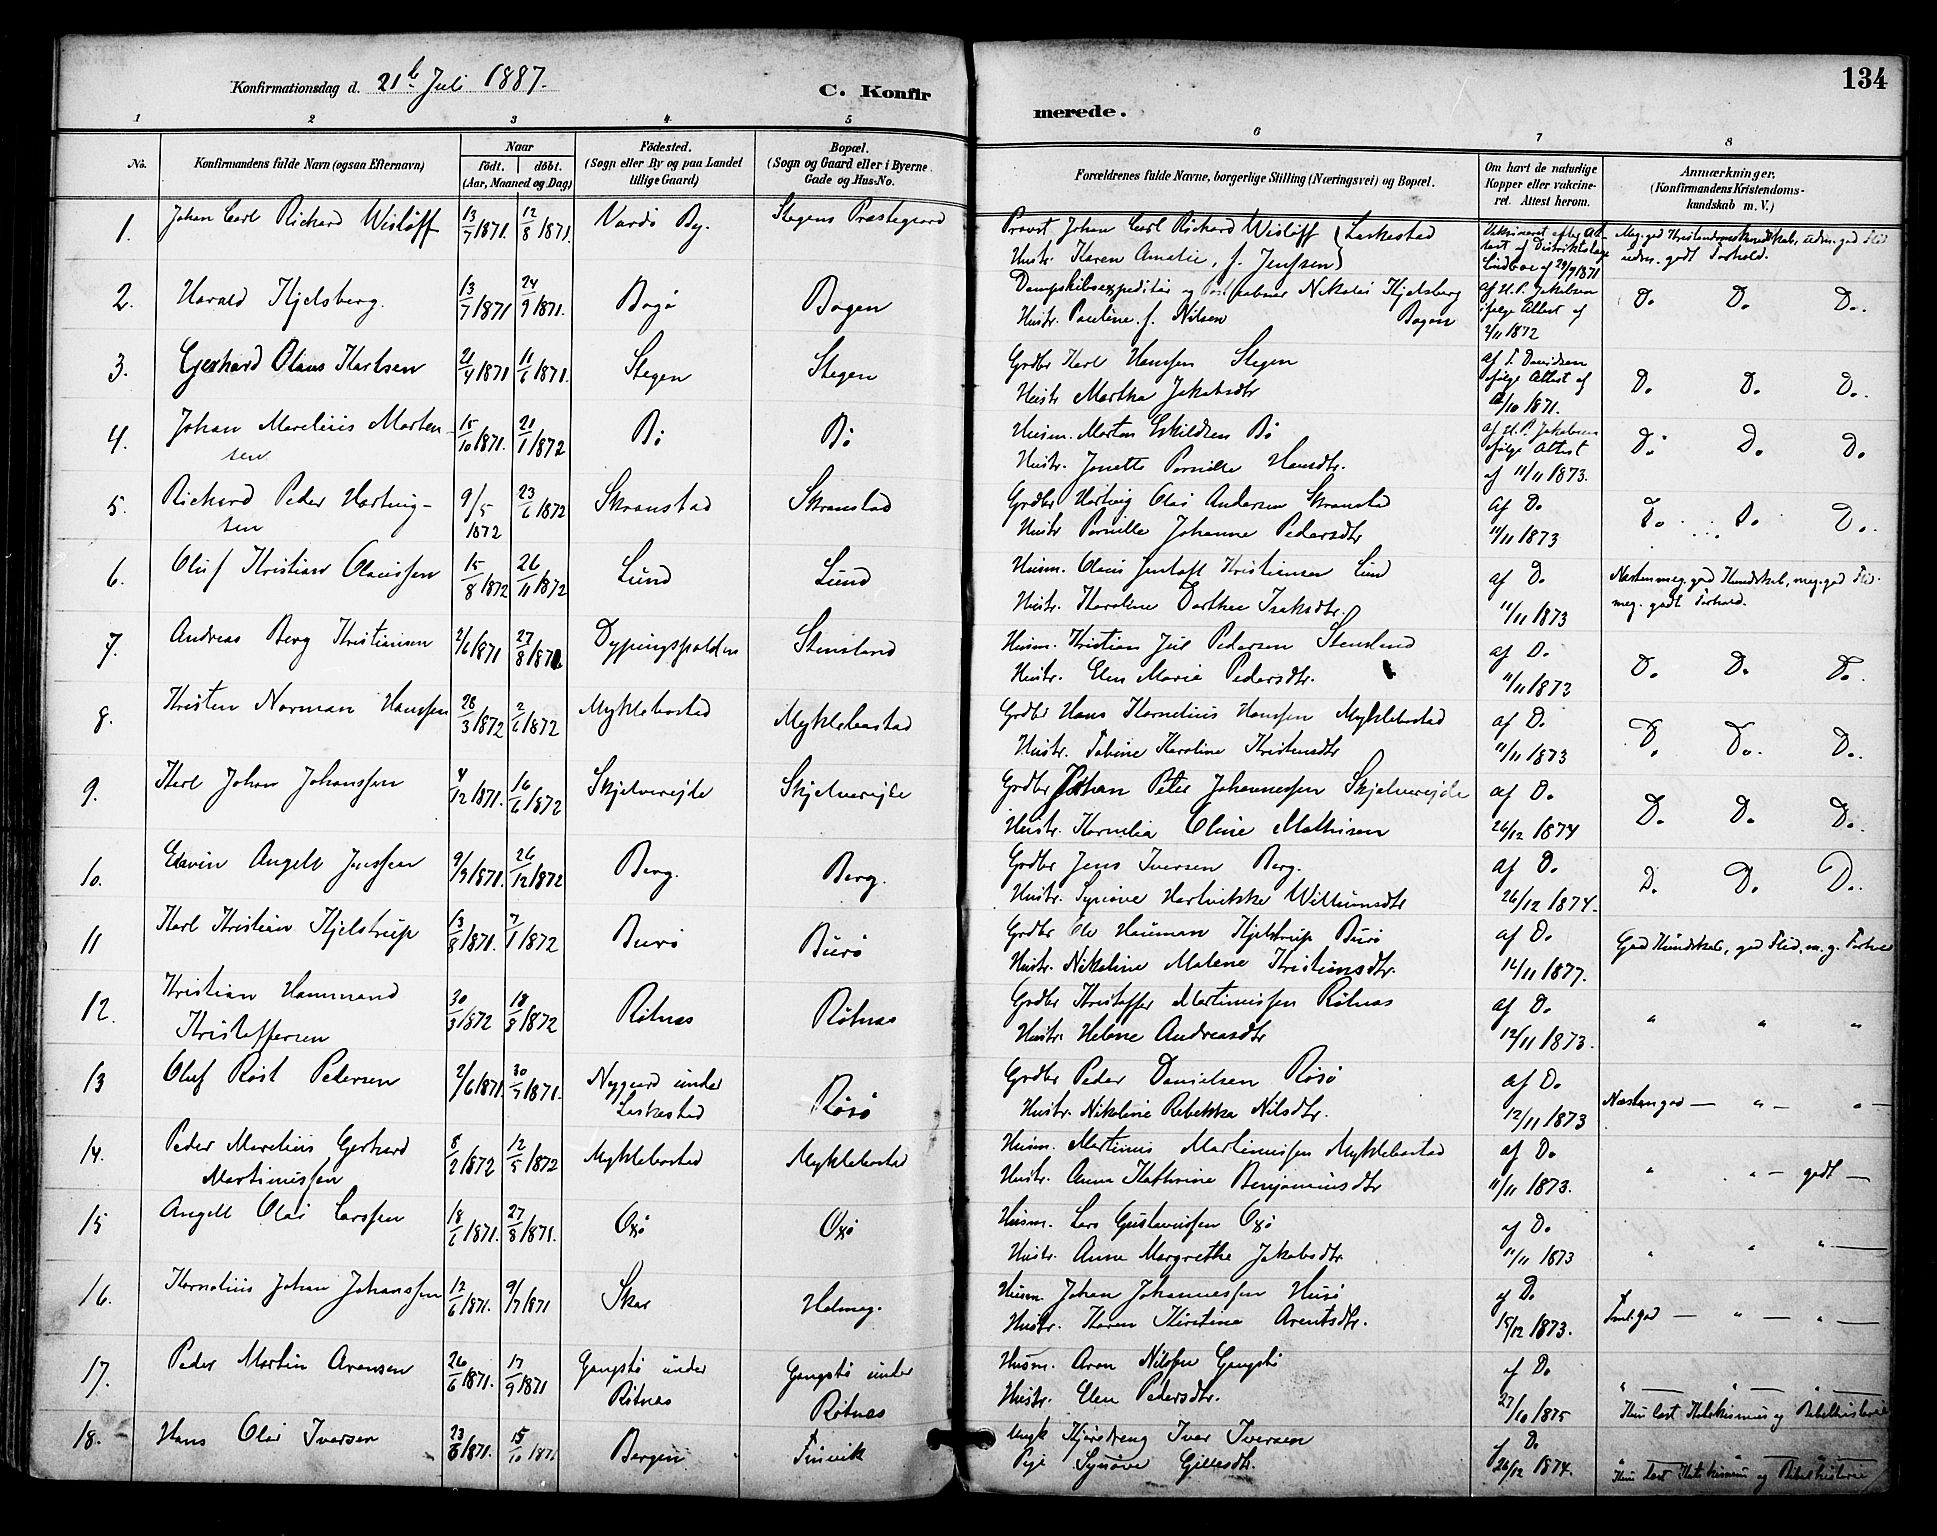 134
Konfirmationsdag d. 21de Juli 1887.
C. Konfirmerede.
1 2 3 4 5 6 7 8
No. Konfirmandens fulde Navn (ogsaa Efternavn) Naar födt. döbt. (Aar, Maaned og Dag) Födested. (Sogn eller By og paa Landet tillige Gaard) Bopæl. (Sogn og Gaard eller i Byerne Gade og Hus-No. Forældrenes fulde Navne, borgerlige Stilling (Næringsvei) og Bopæl. Om havt de naturlige Kopper eller vakcineret. Attest herom. Anmærkninger. (Konfirmandens Kristendomskundskab m. V.)
1. Johan Carl Richard Wislöff 13/7 1871. 12/8 1871. Vardö By. Stegens Præstegaard Provst Johan Carl Richard Wislöff Laskestad
Hustr. Karen Amalie, f. Jenssen
Vakcineret efter Attest af Distriktslæge Lindboe af 29/9 1871 Meg. god Kristendomskundskab, udm. god Flid udm. godt Forhold.
2. Harald Kjelsberg. 13/7 1871 24/9 1871. Bogö Bogen Dampskibsexpeditör og Postaabner Nikolai Kjelsberg
Hustr. Pauline f. Nilsen Bogen
af H. P. Jakobsen ifølge Attest af 2/11 1872 Do. Do. Do.
3. Gerhard Olaus Karlsen 21/4 1871 11/6 1871. Stegen Stegen Grdbr Karl Hanssen Stegen
Hustr Martha Jakobsdtr
af Davidsen ifølge Attest af /10 1871. Do. Do. Do.
4. Johan Marelius Martensen 15/10 1871. 21/1 1872 Bö Bö Husm. Morten Eskildsen Bö
Hustr. Jonette Pernille Hansdtr.
af H. P. Jakobsen ifølge Attest af 11/11 1873. Do. Do. Do.
5. Richard Peder Hartvigsen 9/5 1872 23/6 1872 Skranstad Skranstad Grdbr Hartvig Olai Andersen Skranstad
Hustr Pernille Johanne Pedersdtr
Af Do. 11/11 1873 Do. Do. Do.
6. Oluf Kristian Olaussen 15/8 1872 26/11 1872 Lund Lund Husm. Olaus Jentoft Kristiansen Lund
Hustr. Karoline Dorthea Isaksdtr.
af Do. 11/11 1873 Næsten meg. god Kundskab, meg. god Flid meg. godt Forhold.
7. Andreas Berg Kristiansen 2/6 1871 27/8 1871 Dypingspolden Stensland Husm. Kristian Jul Pedersen Stensland
Hustr. Elen Marie Pedersdtr.
af Do. 11/11 1873 Do. Do. Do.
8. Kristen Norman Hanssen 28/3 1872 2/6 1872 Myklebostad Myklebostad Grdbr Hans Kornelius Hanssen Myklebostad
Hustr. Tobine Karoline Kristensdtr
af Do. 11/11 1873 Do. Do. Do.
9. Karl Johan Johanssen 4/12 1871. 16/6 1872 Skjelvereide Skjelvereide Grdbr Johan Peter Johannessen Skjelvereide
Hustr. Kornelia Oline Mathisen
af Do. 26/12 1874 Do. Do. Do.
10. Edvin Angell Jenssen 9/9 1871. 26/12 1872 Berg. Berg. Grdbr Jens Iversen Berg.
Hustr. Synove Hartvikke Williumsdtr
af Do. 26/12 1874. Do. Do. Do.
11 Karl Kristian Kjelstrup 13/8 1871. 7/1 1872 Burö Burö Grdbr Ole Hauman Kjelstrup Burö
Hustr. Nikoline Malene Kristiansdtr.
af Do. 12/11 1877. God Kundskab, god Flid, m. g. Forhold
12. Kristian Hammond Kristoffersen 30/3 1872 18/8 1872 Rötnæs Rötnæs Grdbr Kristoffer Martinussen Rötnæs
Hustr. Helene Andreasdtr
af Do. 12/11 1873. " " "
13 Oluf Röst Pedersen 2/6 1871. 30/7 1871. Nygaard under Laskestad Rösö Grdbr Peder Danielsen Rösö
Hustr. Nikoline Rebekka Nilsdtr.
af Do. 12/11 1873 Næsten god — " — " —
14. Peder Marelius Gerhard Martinussen 8/2 1872 12/5 1872 Myklebostad Myklebostad Husm. Martinus Martinussen Myklebostad
Hustr. Anna Kathrine Benjaminsdtr
af Do. 11/11 1873. " " — godt —
15 Angell Olai Larssen 18/6 1871. 27/8 1871. Oxö Oxö Husm. Lars Gustavussen Oxö
Hustr. Anne Margrethe Jakobsdtr.
af Do. 11/11 1873 " " " —
16. Kornelius Johan Johanssen 12/6 1871. 9/7 1871 Skar Holmeg. Husm. Johan Johannessen Husö
Hustr. Karen Kirstine Arentsdtr.
af Do. 15/12 1873. Tml. god — " — " —
17. Peder Martin Aronsen 26/6 1871. 17/9 1871 Gangstö under Rötnæs Gangstö under Rötnæs Husm. Aron Nilssen Gangstö
Hustr. Elen Pedersdtr.
af Do. 27/10 1875 " — " — " — Kun læst Katekismus og Bibelhistorie
18. Hans Olai Iversen 23/8 1871. 15/10 1871 Bergen Finvik Ungk Iver Iversen
Pige Synöve Gillesdtr.
af Do. 26/12 1874. " " " Kun læst Katekismus og Bibelhistorie